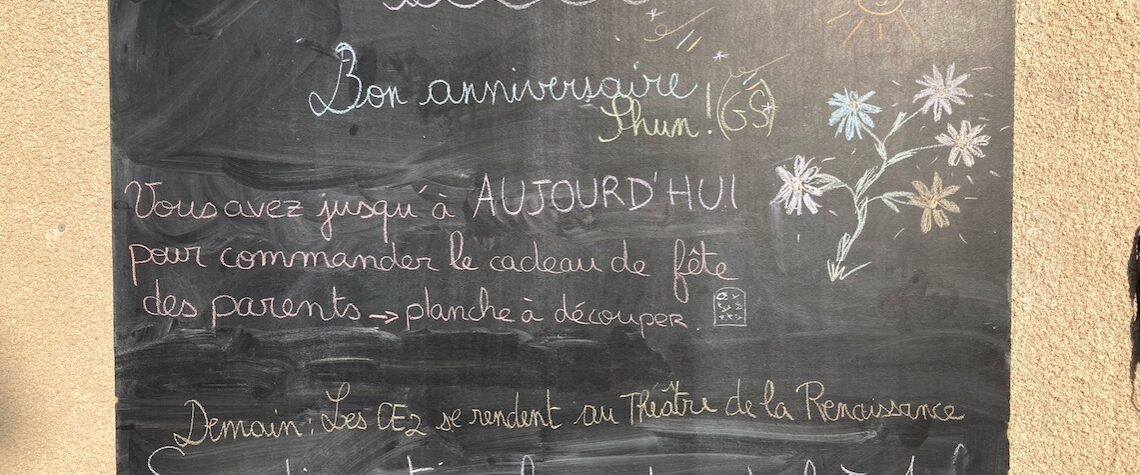 Bon anniversaire
Shun ! (GS)
Vous avez jusqu'à AUJOURD'HUI
pour commander le cadeau de fête
des parents → planche à découper.
Demain : Les CE2 se rendent au Théâtre de la Renaissance